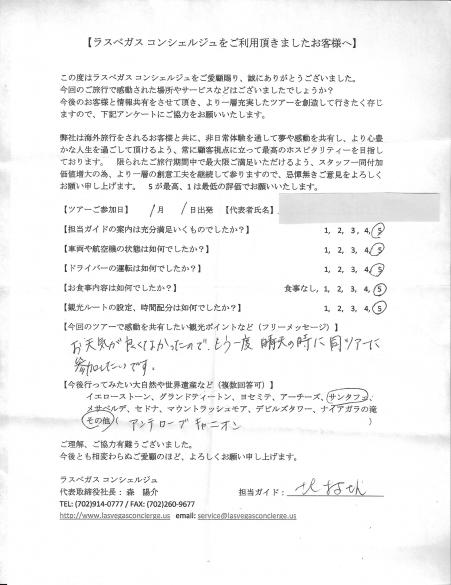 【ラスベガス コンシェルジュをご利用頂きましたお客様へ】
この度はラスベガス コンシェルジュをご愛顧賜り、誠にありがとうございました。
今回のご旅行で感動された場所やサービスなどはございましたでしょうか？
今後のお客様と情報共有をさせて頂き、より一層充実したツアーを創造して行きたく存じ
ますので、下記アンケートにご協力をお願いいたします。
弊社は海外旅行をされるお客様と共に、非日常体験を通して夢や感動を共有し、より心豊
かな人生を過ごして頂けるよう、常に顧客視点に立って最高のホスピタリティーを目指し
ております。 限られたご旅行期間中で最大限ご満足いただけるよう、スタッフ一同付加
価値増大の為、より一層の創意工夫を継続して参りますので、忌憚無きご意見をよろしく
お願い申し上げます。 5が最高、1は最低の評価でお願いいたします。
【ツアーご参加日】 1月 1日出発 【代表者氏名】
【担当ガイドの案内は充分満足いくものでしたか？】 1, 2, 3, 4, 5
【車両や航空機の状態は如何でしたか？】 1, 2, 3, 4, 5
【ドライバーの運転は如何でしたか？】 1, 2, 3, 4, 5
【お食事内容は如何でしたか？】 食事なし, 1, 2, 3, 4, 5
【観光ルートの設定、時間配分は如何でしたか？】 1, 2, 3, 4, 5
【今回のツアーで感動を共有したい観光ポイントなど（フリーメッセージ）】
お天気が良くてよかったので、もう一度 晴天の時に同ツアーに
参加したいです。
【今後行ってみたい大自然や世界遺産など（複数回答可）】
イエローストーン、グランドティートン、ヨセミテ、アーチーズ、サンタフェ、
メサベルデ、セドナ、マウントラッシュモア、デビルズタワー、ナイアガラの滝
その他( アンテロープキャニオン )
ご理解、ご協力有難うございました。
今後とも相変わらぬご愛顧のほど、よろしくお願い申し上げます。
ラスベガス コンシェルジュ
代表取締役社長： 森 陽介 担当ガイド：
TEL: (702)914-0777 / FAX: (702)260-9677
http://www.lasvegasconcierge.us email: service@lasvegasconcierge.us